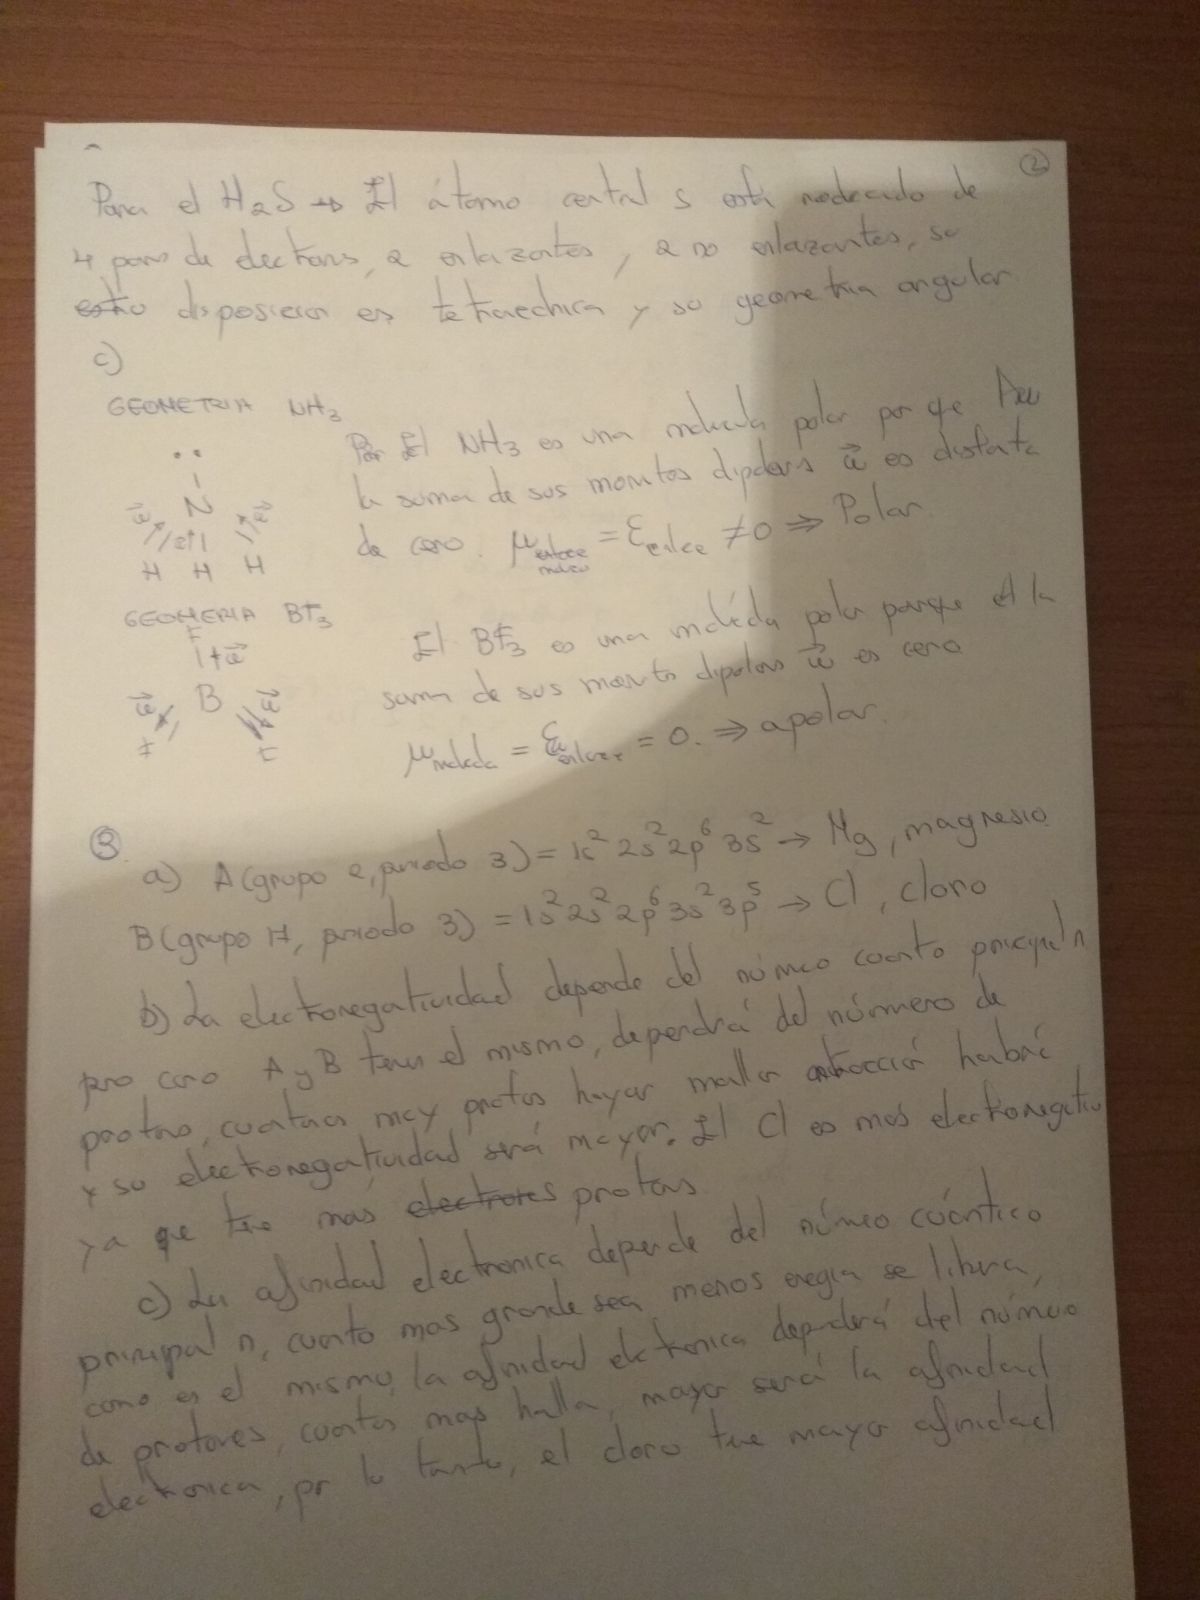 2
Para el H₂S → El átomo central S está rodeado de
4 pares de electrons, 2 enlazantes, 2 no enlazantes, su
disposicion es tetraedrica y su geometria angular
c)
GEOMETRIA NH₃
El NH₃ es una molecula polar por que
la suma de sus momentos dipolars u⃗ es distinta
de cero. μ = Σ enlace ≠ 0 ⇒ Polar.
N
u⃗ u⃗ u⃗
H H H
GEOMERIA BF₃
F
u⃗
El BF₃ es una molécula polar porque la
suma de sus momento dipolars u⃗ es cero
u⃗ B u⃗
F F
μ molecula = Σ enlace = 0. ⇒ apolar.
3
a) A (grupo 2, periodo 3) = 1s² 2s² 2p⁶ 3s² → Mg, magnesio
B (grupo 17, periodo 3) = 1s² 2s² 2p⁶ 3s² 3p⁵ → Cl, cloro
b) La electronegatividad depende del número cuanto principal n
pero como A y B tenen el mismo, dependrá del númmero de
protons, cuantos may protos hayar mallor atracción habrá
y su electronegatividad será mayor. El Cl es mas electronegativo
ya que tiene mas electrones protons
c) La afinidad electronica depende del número cuántico
principal n, cuanto mas grande sea menos energia se libera,
como es el mismo, la afinidad elctronica dependerá del número
de protones, cuantos mas halla, mayor será la afinidad
electronica, por lo tanto, el cloro tiene mayor afinidad